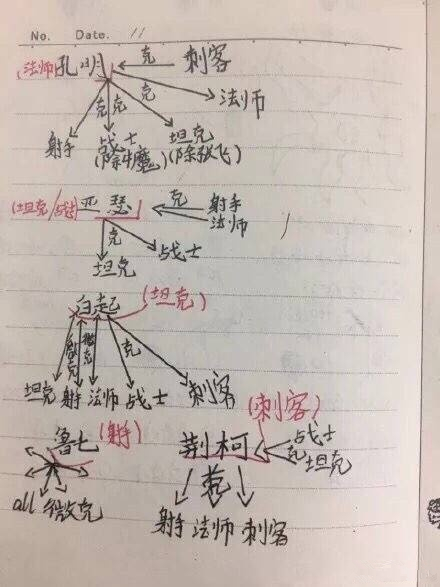 No. Date. 11
(法师)孔明 克 刺客
克 克 克 法师
射手 战士 坦克
(除牛魔) (除张飞)
(坦克/战士) 亚瑟 克 射手
法师
克
坦克 战士
白起 (坦克)
微克 微克 克
坦克 射手 法师 战士 刺客
鲁七 (射手) 荆柯 (刺客)
战士
克 坦克
all 微克 克
射手 法师 刺客